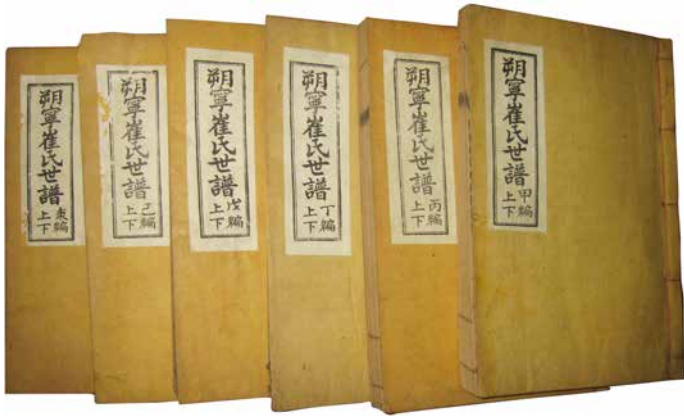 朔寧崔氏世譜
甲編
上下
朔寧崔氏世譜
丙編
上下
朔寧崔氏世譜
丁編
上下
朔寧崔氏世譜
戊編
上下
朔寧崔氏世譜
己編
上下
朔寧崔氏世譜
編
上下